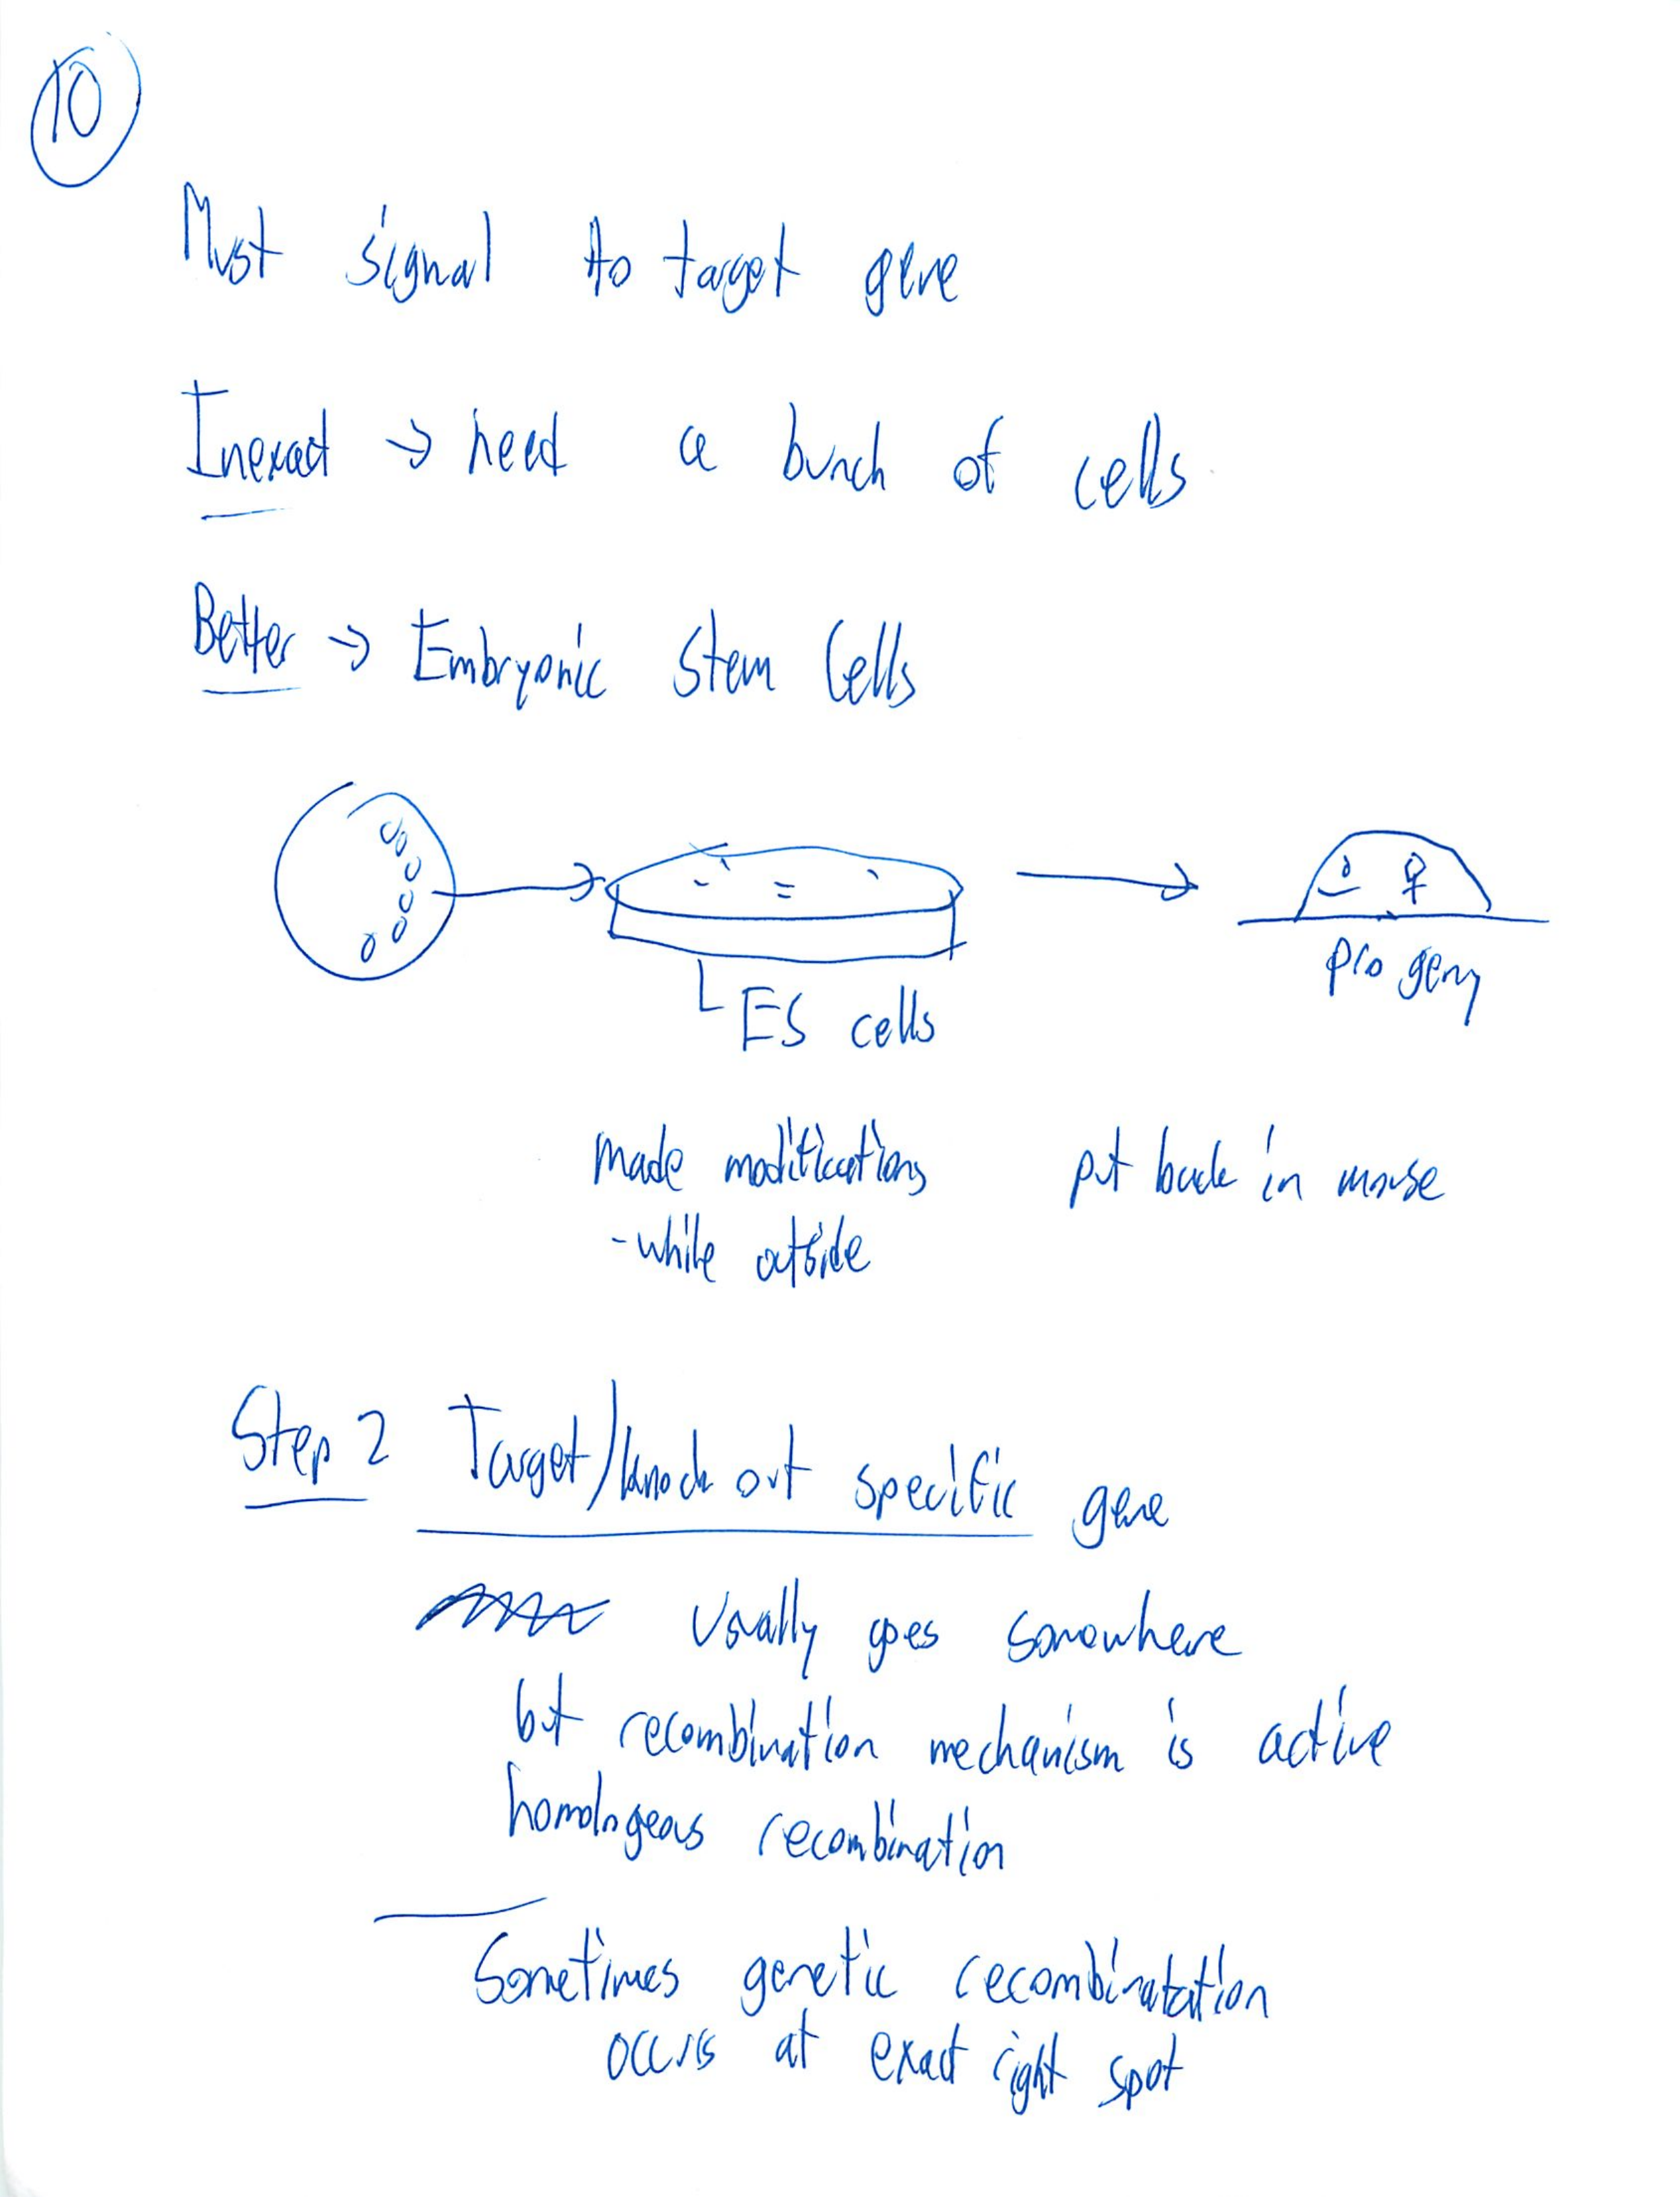 10
Must signal to target gene
Inexact → need a bunch of cells
Better → Embryonic Stem Cells
progeny
ES cells
made modifications put back in mouse
- while outside
Step 2 Target/knock out specific gene
Usually goes somewhere
but recombination mechanism is active
homologeous recombination
Sometimes genetic recombinatation
occurs at exact right spot